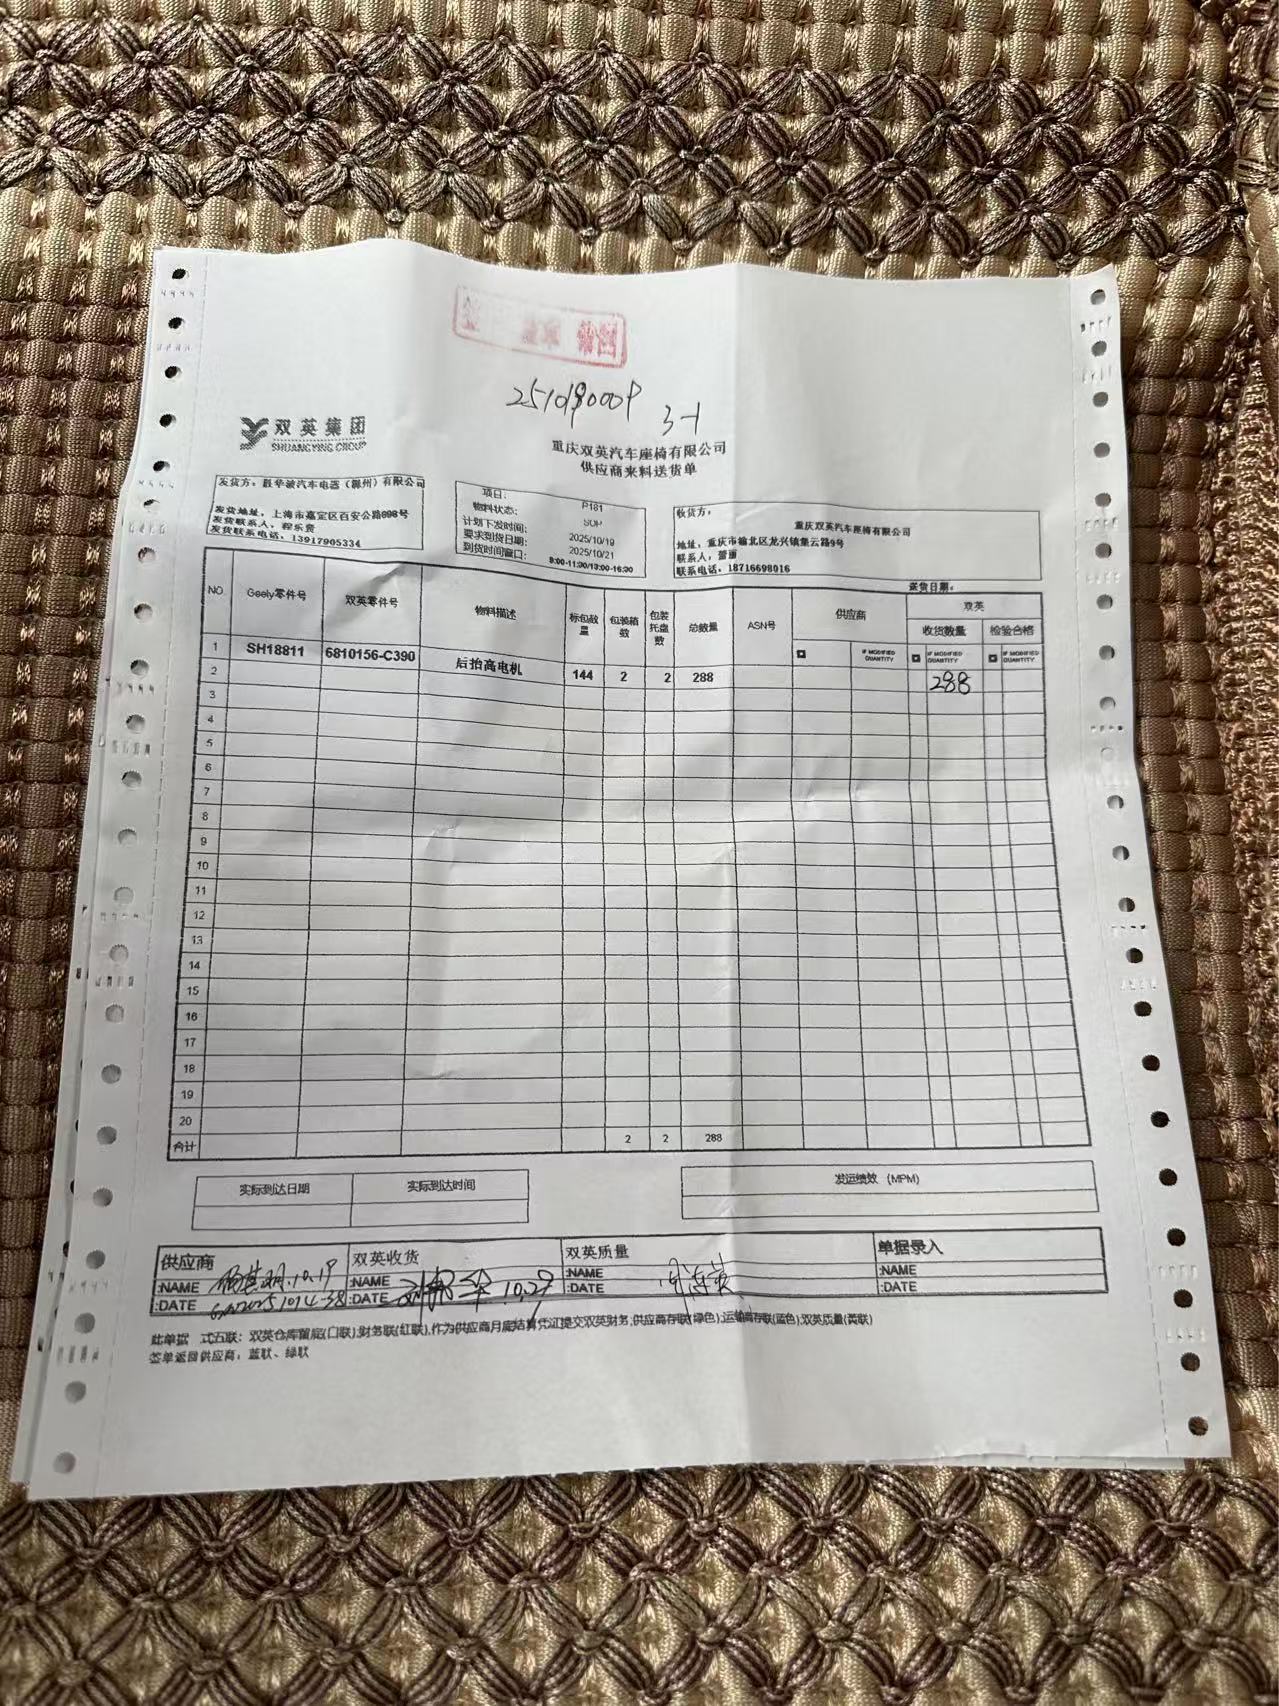 251090009
3-1
双英集团
SHUANGYING GROUP
重庆双英汽车座椅有限公司
供应商来料送货单
发货方：胜华波汽车电器（滁州）有限公司
发货地址：上海市嘉定区百安公路898号
发货联系人：程乐贵
发货联系电话：13917905334
项目： P181
物料状态： SOP
计划下发时间： 2025/10/19
要求到货日期： 2025/10/21
到货时间窗口： 8:00-11:30/13:00-16:30
收货方：
重庆双英汽车座椅有限公司
地址：重庆市渝北区龙兴镇集云路9号
联系电话：18716698016
送货日期：
NO Geely零件号 双英零件号 物料描述 标包数量 包装箱数 包装托盘数 总数量 ASN号 供应商 双英
收货数量 检验合格
IF MODIFIED QUANTITY IF MODIFIED QUANTITY IF MODIFIED QUANTITY
1 SH18811 6810156-C390 后抬高电机 144 2 2 288 288
2
3
4
5
6
7
8
9
10
11
12
13
14
15
16
17
18
19
20
合计 2 2 288
实际到达日期 实际到达时间 发运绩效 (MPM)
供应商 双英收货 双英质量 单据录入
:NAME 10.19 :NAME :NAME :NAME
:DATE :DATE 10.27 :DATE :DATE
此单据一式五联：双英仓库留底(白联);财务联(红联),作为供应商月底结算凭证提交双英财务;供应商存联(绿色);运输商存联(蓝色);双英质量(黄联)
签单返回供应商：蓝联、绿联